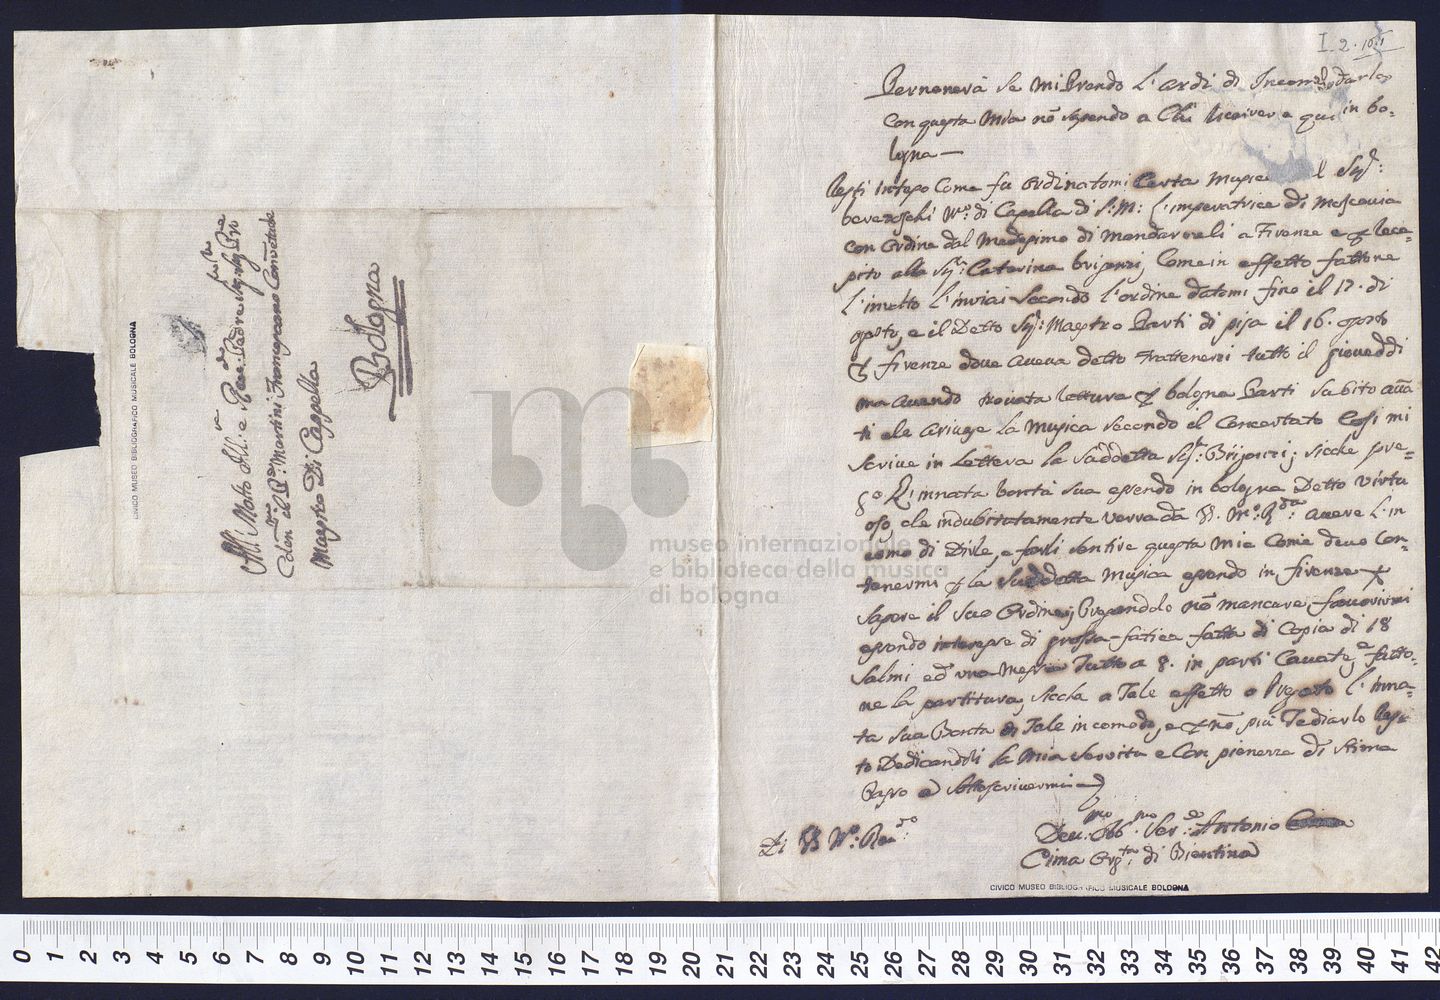 I. 2. 101
Perdonerà se mi Prendo l'ardi di Incomodarlo
con questa mia nō sapendo a Chi scriver e qui in bo=
logna —
Resti Inteso Come fu Ordinatomi Certa Musica l Sigr:
Mro: di Capella di S: M: l'imperatrice di Moscovia
con Ordine dal Medesimo di Mandarveli a Firenze e reca=
pito alla Sigr: Caterina Come in effetto fattone
l'involto l'inviai secondo l'ordine datomi fino il 17. di
agosto, e il Detto Sigr: Maestro Partì di pisa il 16. agosto
firenze dove aveva detto trattenersi tutto il gioveddì
ma avendo trovata lettura bologna Partì subito avā
ti che arivase la Musica secondo il Concertato Così mi
scrive in Lettera la suddetta Sigr: sicche pre=
innata bontà sua essendo in bologna Detto Virtu
oso, che indubitatamente verrà da averà l'in
comodo di Dirle, e farli sentire questa mia Come devo Con=
tenermi la Suddetta Musica essendo in firenze
sapere il suo Ordine, Pregandolo nō mancare, favorirmi
essendo interesse di grossa fatica fatta di Copia di 18
Salmi ed una Messa Tutto a 8. in parti Cavate, e fatto=
ne la partitura, sicche a Tale effetto o Pregato l'inna=
ta sua Bontà di Tale incomodo, e nō più Tediarlo Res=
to Dedicandoli la Mia servitù e Con pienezza di stima
Passo a sottoscrivermi
Di Rdo:
Devmo: Obbmo Serdo: Antonio
Cima Orgta: di Bientina
CIVICO MUSEO BIBLIOGRAFICO MUSICALE BOLOGNA
All Molto Ill: e Padre Sigr
il Martini Franciscano Conventuale
Maestro Di Cappella
Bologna
CIVICO MUSEO BIBLIOGRAFICO MUSICALE BOLOGNA
museo internazionale
e biblioteca della musica
di bologna
0 1 2 3 4 5 6 7 8 9 10 11 12 13 14 15 16 17 18 19 20 21 22 23 24 25 26 27 28 29 30 31 32 33 34 35 36 37 38 39 40 41 42